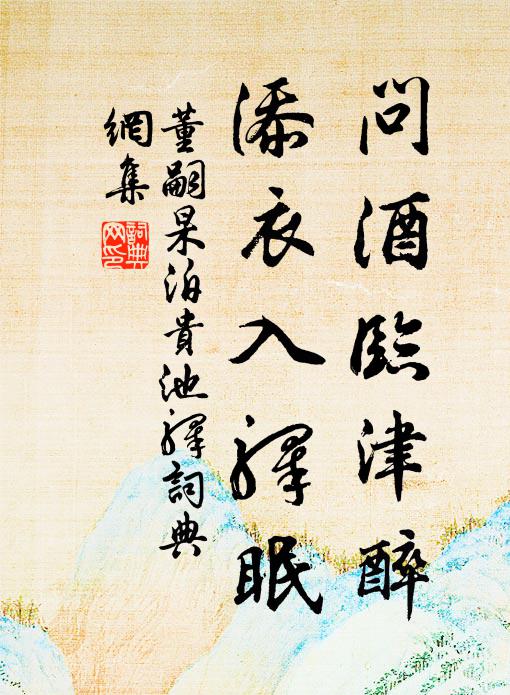 問酒臨津醉
添衣入驛眠
董嗣杲泊貴池驛詞典
網集
詞典
网印